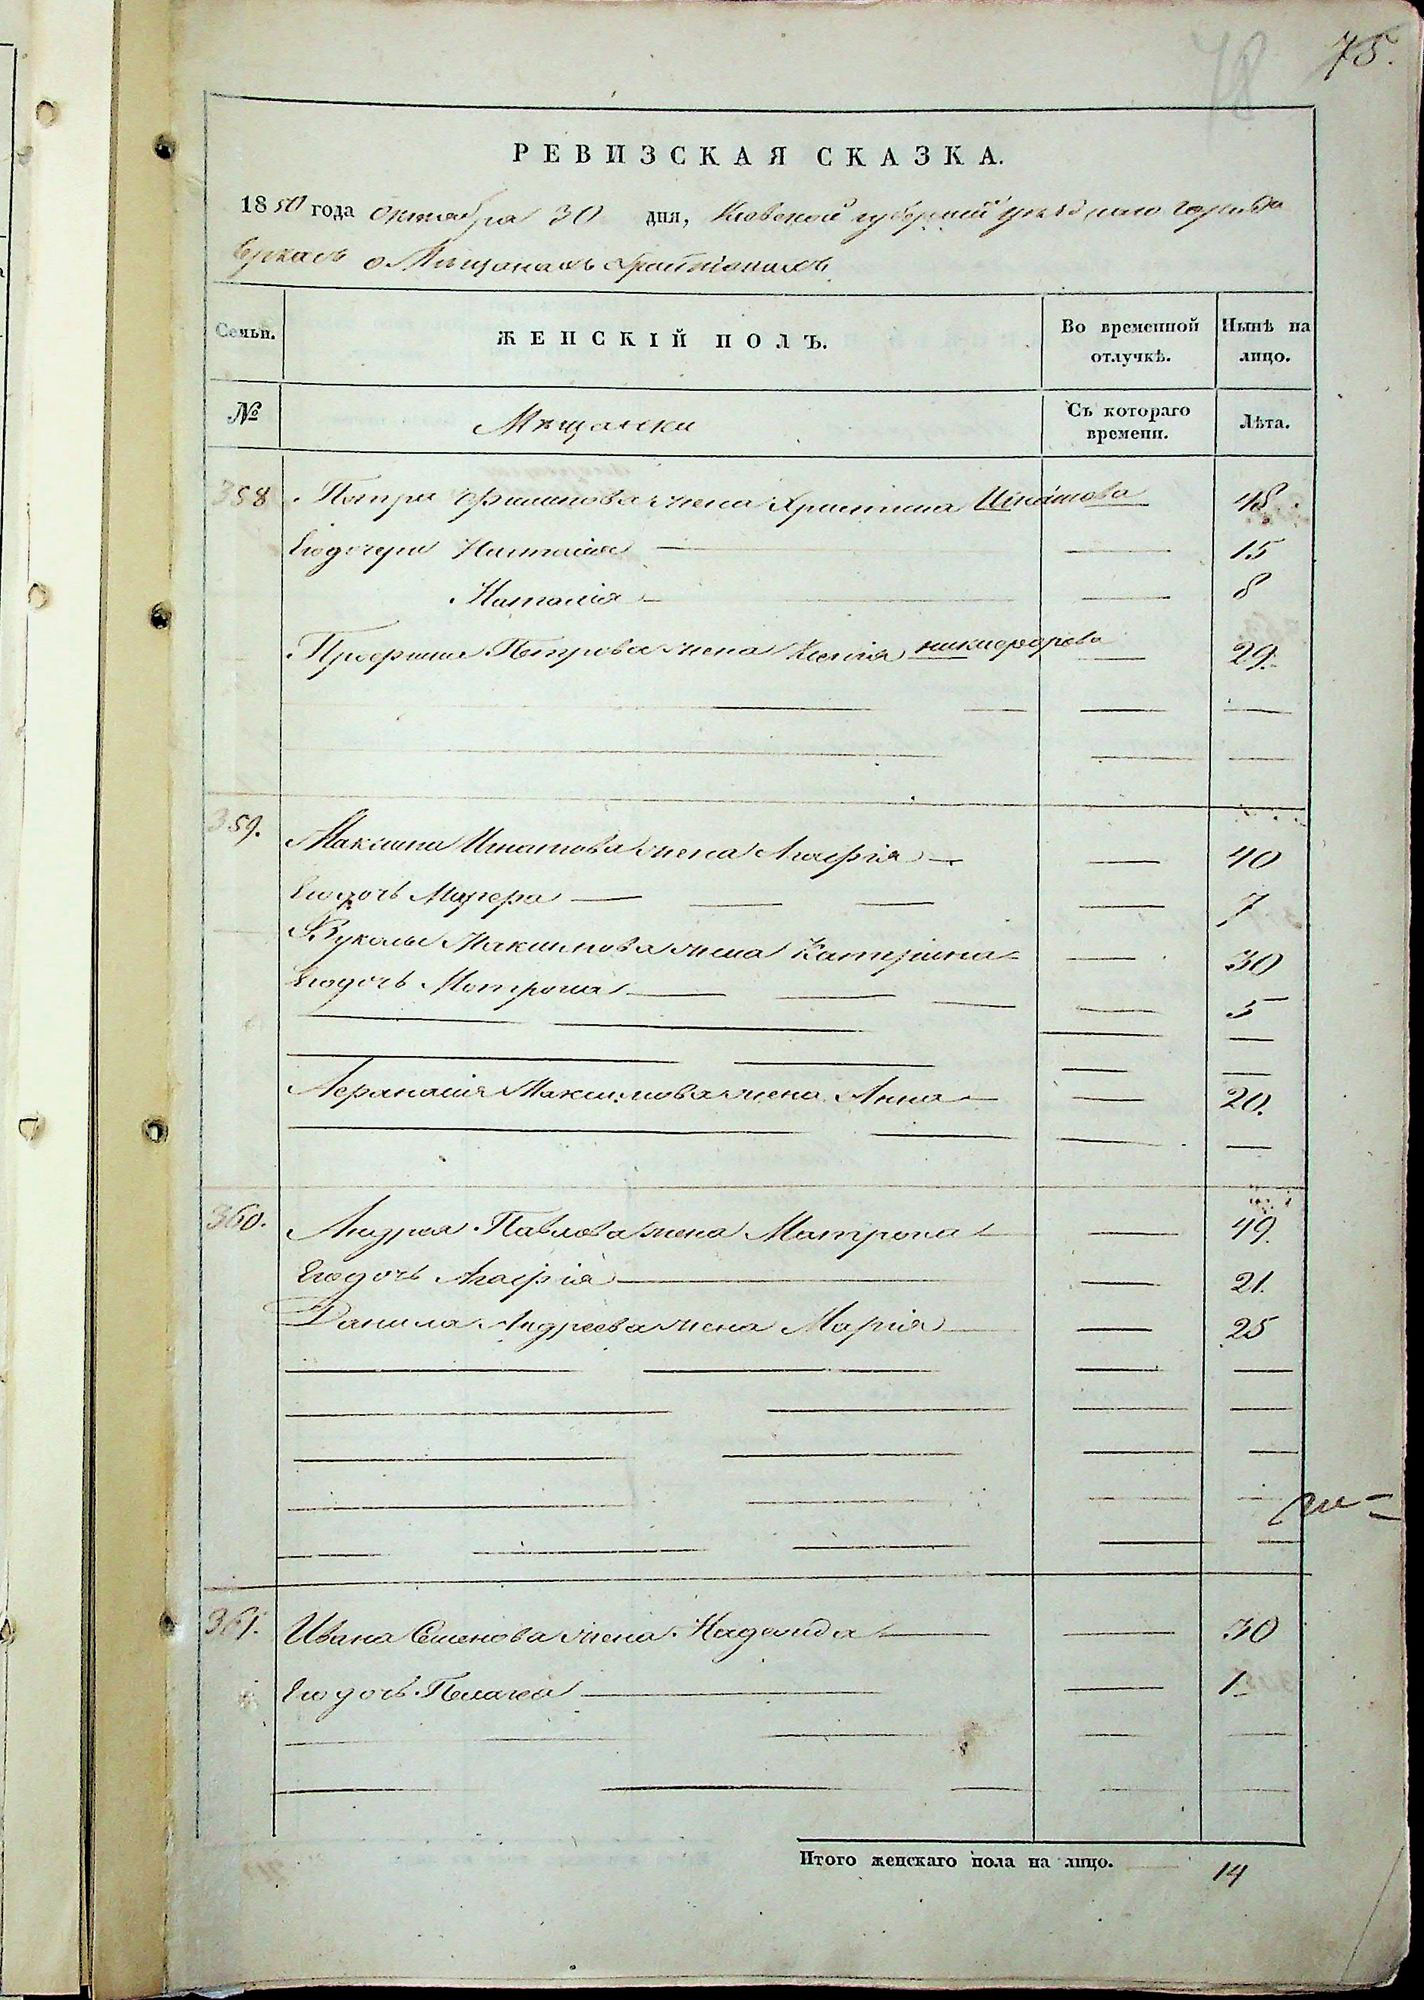 78 75.
РЕВИЗСКАЯ СКАЗКА.
1850 года октября 30 дня, Киевской губернии уезднаго города
Черкас о Мещанах христианах
Семьи. ЖЕНСКІЙ ПОЛЪ. Во временной отлучкѣ. Нынѣ на лицо.
№ Мещанки Съ котораго времени. Лѣта.
358 Петра Филипова жена Христина Игнатова 48
Его дочери 15
Наталія 8
Петрова жена Ксенія никифорова 29.
359. Максима Игнатова жена Агафія 40
Его дочь 7
Вукола Максимова жена Катерина 30
Его дочь Мотрона 5
Афанасія Максимова жена Анна 20.
360. Андрея Павлова жена Матрона 49.
Его дочь Агафія 21.
Данила Андреева жена Марія 25
361. Ивана Семенова жена Надежда 30
Его дочь Пелагея 1
Итого женскаго пола на лицо. 14